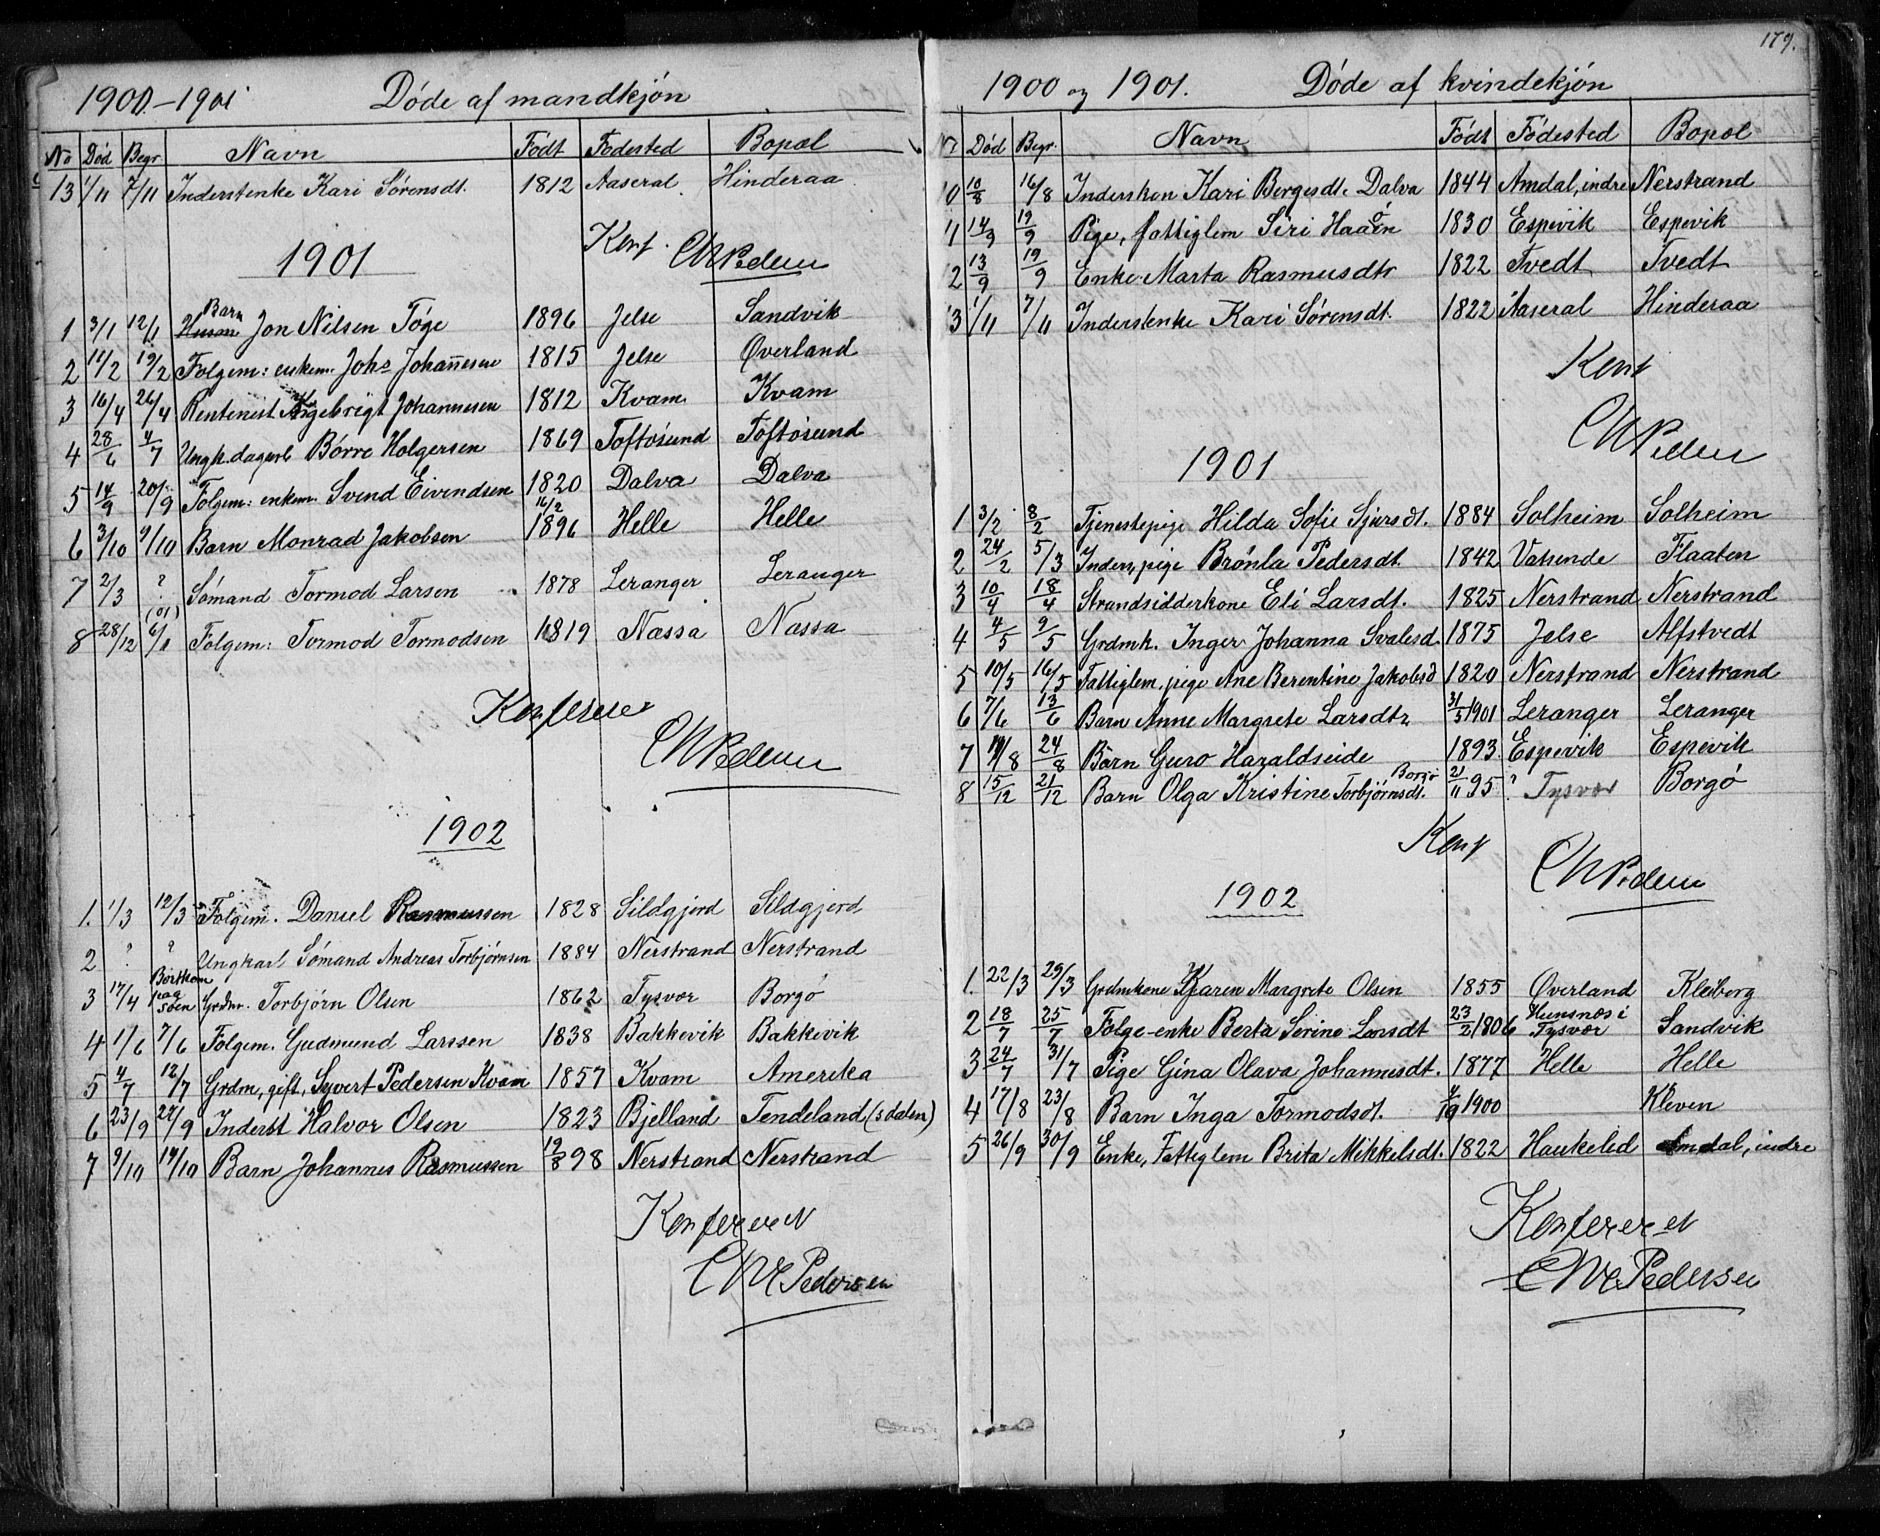 1900–1901 Døde af mandkjøn
No Død Begr Navn Født Fødested Bopæl
13 1/11 7/11 Inderstenke Kari Sørensdt. 1812 Aaseral Hinderaa
Konf.
1901
1 3/1 12/1 Barn Jon Nilsen Tøge 1896 Jelse Sandvik
2 11/2 19/2 Folgem: enkem. Johs Johannesen 1815 Jelse Øverland
3 16/4 26/4 Rentenist Ingebrigt Johannesen 1812 Kvam Kvam
4 28/6 4/7 Ungk. dagarb Børre Holgersen 1869 Toftøsund Toftøsund
5 14/9 20/9 Folgem: enkem. Svend Eivendsen 1820 Dalva Dalva
6 3/10 9/10 Barn Monrad Jakobsen 16/2 1896 Helle Helle
7 2/3 ? Sømand Tormod Larsen 1878 Leranger Leranger
(01)
8 28/12 6/1 Folgem: Tormod Tormodsen 1819 Næssa Næssa
1902
1. 1/3 12/3 Folgem. Daniel Rasmussen 1828 Sildgjerd Sildgjerd
2 ? ? Ungkarl Sømand Andreas Torbjørnsen 1884 Nerstrand Nerstrand
3 17/4 Bortkom paa søen Grdm. Torbjørn Olsen 1862 Tysvær Borgø
4 1/6 7/6 Folgem. Gudmund Larssen 1838 Bakkevik Bakkevik
5 4/7 12/7 Grdm, gift, Syvert Pedersen Kvam 1857 Kvam Amerika
6 23/9 27/9 Inderst Halvor Olsen 1823 Bjelland Tendeland (sdalen)
7 9/10 14/10 Barn Johannes Rasmussen 19/8 98 Nerstrand Nerstrand
Konfereret
Pedersen
179.
1900 og 1901. Døde af kvindekjøn
Død Begr. Navn Født Fødested Bopæl
10 10/8 16/8 Inderskon Kari Bergesdt. Dalva 1844 Amdal, indre Nerstrand
11 14/9 19/9 Pige, fattiglem Siri 1830 Espevik Espevik
12 13/9 19/9 Enke Marta Rasmusdtr 1822 Tvedt Tvedt
13 1/11 7/11 Inderstenke Kari Sørensdt. 1822 Aaseral Hinderaa
Konf
1901
1 3/2 8/2 Tjenestepige Hilda Sofie Sjursdt. 1884 Solheim Solheim
2 24/2 5/3 Inders, pige Brønla Pedersdt. 1842 Vatsende Flaaten
3 10/4 18/4 Strandsidderkone Eli Larsdt. 1825 Nerstrand Nerstrand
4 4/5 9/5 Grdmk. Inger Johanna Svalesd. 1875 Jelse Alfstvedt
5 10/5 16/5 Fattiglem, pige Ane Berentine Jakobsd 1820 Nerstrand Nerstrand
6 7/6 13/6 Barn Anne Margrete Larsdtr 31/5 1901 Leranger Leranger
7 19/8 24/8 Barn Guro Haraldseide 1893. Espevik Espevik
8 15/12 21/12 Barn Olga Kristine Torbjørnsdt. Borgø 21/11 95 ? Tysvær Borgø
Konf
1902
1. 22/3 29/3 Grdmkone Karen Margrete Olsen 1855 Øverland Kleiberg
2 18/7 25/7 Folge-enke Berta Serine Larsdt 23/2 1806 Hunsnæs i Tysvær Sandvik
3 24/7 31/7 Pige Gina Olava Johannesdt. 1877 Helle Helle
4 17/8 23/8 Barn Inga Tormodsdt. 1900 Kleven
5 26/9 30/9 Enke, Fattiglem Brita Mikkelsdt. 1822 Haukelid Amdal, indre
Konfereret
Pedersen